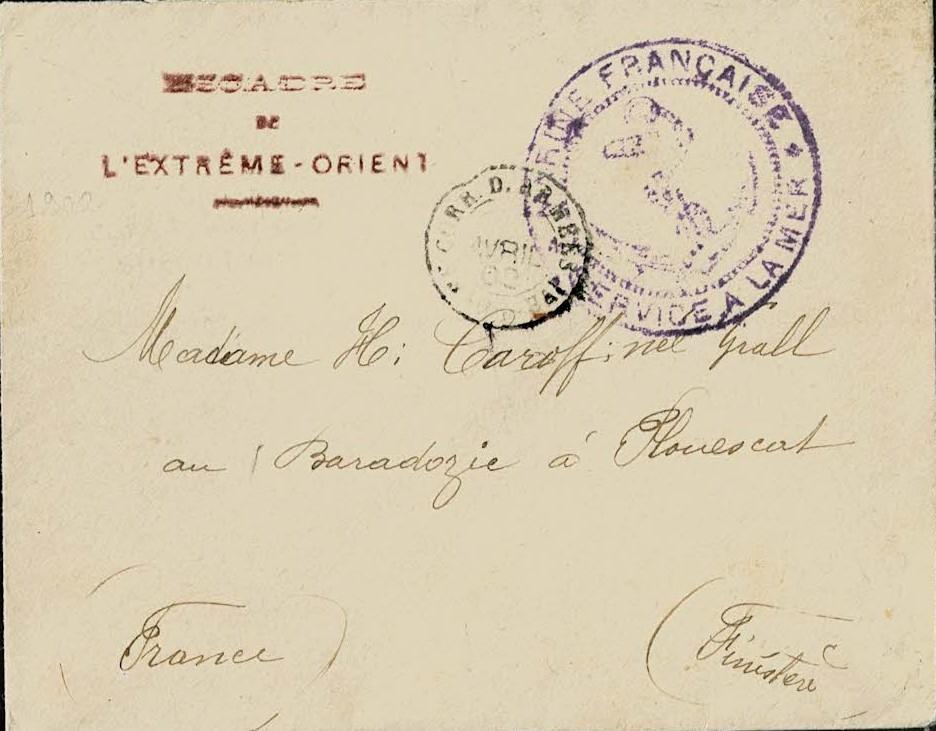 ESCADRE
DE
L'EXTRÊME-ORIENT
MARINE FRANÇAISE
SERVICE A LA MER
CORR. D. ARMEES
AVRIL
02
1902
Madame H: Caroff: née Grall
au Baradozic à Plouescat
(France)
(Finistère)